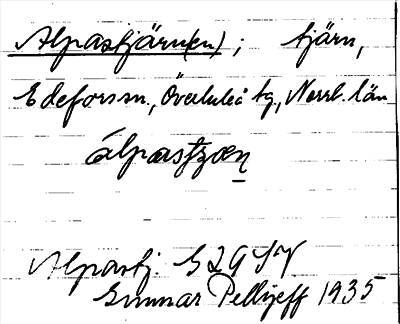 Alpastjärn(en); tjärn,
Edefors sn., Överluleå tg., Norrb. län
Alpastj. G29SV
Gunnar Pellijeff 1935